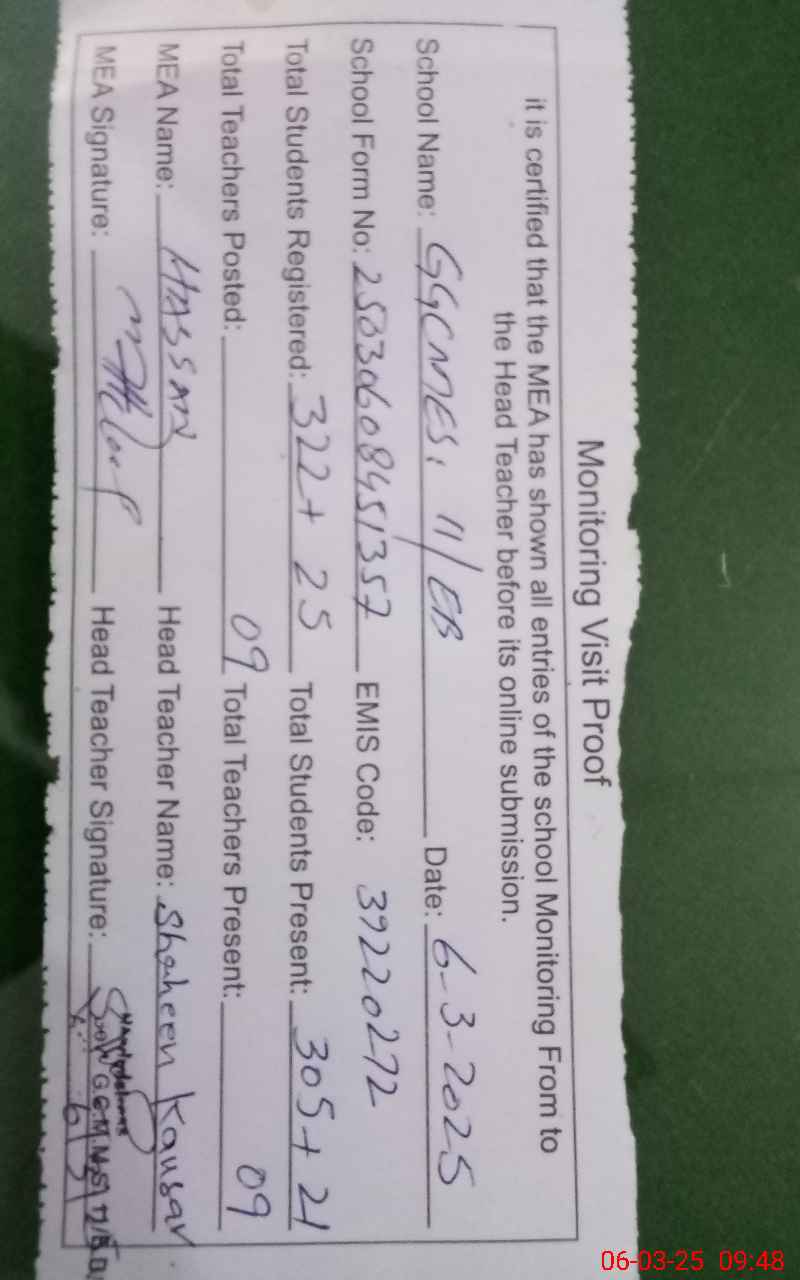 Monitoring Visit Proof
it is certified that the MEA has shown all entries of the school Monitoring From to
the Head Teacher before its online submission.
School Name: GGCMES, 11/EB Date: 6-3-2025
School Form No: 25030608451357 EMIS Code: 39220272
Total Students Registered: 322+ 25 Total Students Present: 305+21
Total Teachers Posted: 09 Total Teachers Present: 09
MEA Name: HASSAN Head Teacher Name: Shaheen Kausar
MEA Signature: Head Teacher Signature:
06-03-25 09:48